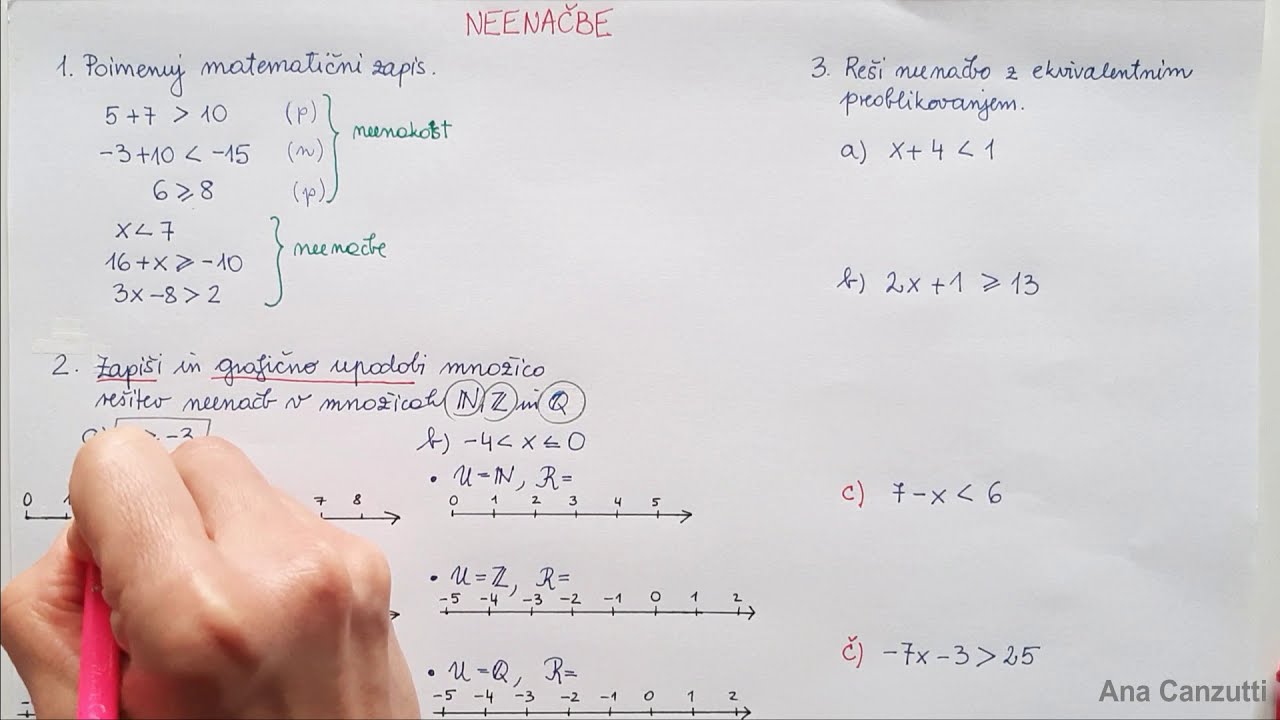 NEENAČBE
1. Poimenuj matematični zapis.
5+7 > 10 (p)
-3+10 < -15 (n)
6 ⩾ 8 (p)
neenakost
x < 7
16+x ⩾ -10
3x-8 > 2
neenačbe
2. Zapiši in grafično upodobi množico
rešitev neenačb v množicah N, Z in Q
-3
0 7 8
b) -4 < x ≤ 0
• U=N, R=
0 1 2 3 4 5
• U=Z, R=
-5 -4 -3 -2 -1 0 1 2
• U=Q, R=
-5 -4 -3 -2 -1 0 1 2
3. Reši neenačbo z ekvivalentnim
preoblikovanjem.
a) x+4 < 1
b) 2x+1 ⩾ 13
c) 7-x < 6
č) -7x-3 > 25
Ana Canzutti